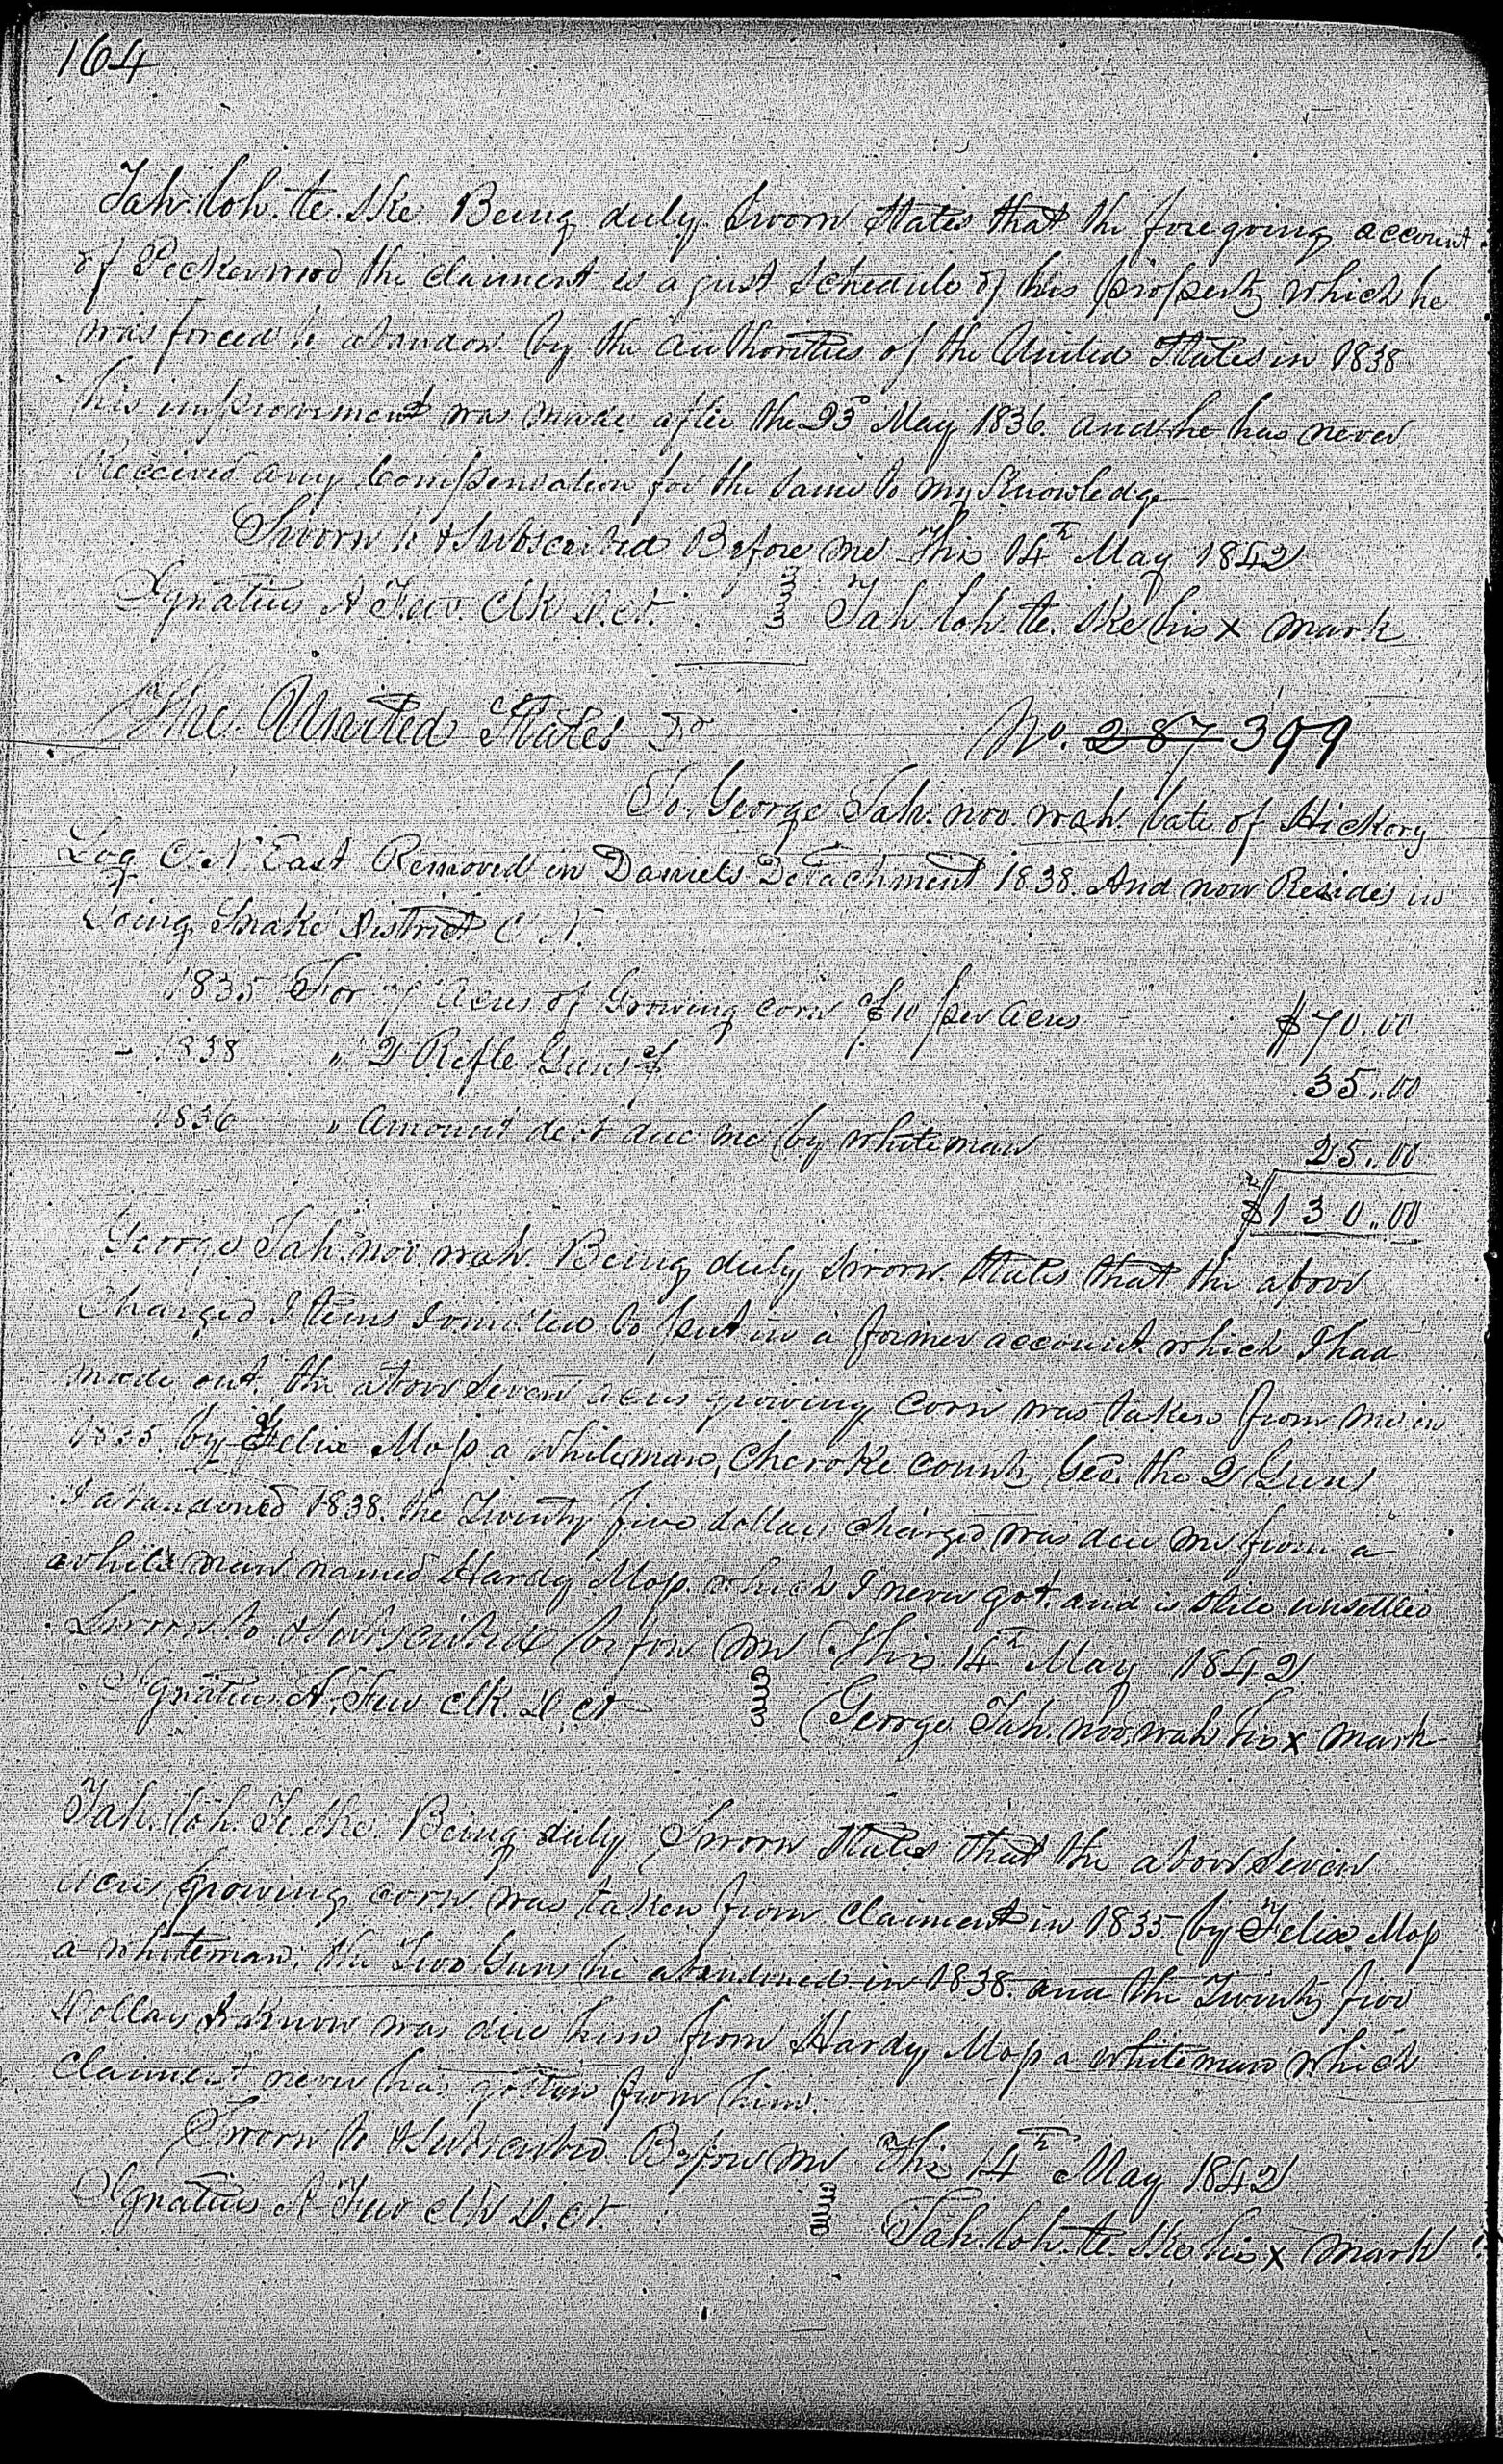 164
Tah. loh. te. ske. Being duly Sworn States that the foregoing account
of Peckerwood the claiment is a just Schedule of his property which he
was forced to abandon by the authorities of the United States in 1838
his improvement was made after the 23d May 1836. and he has never
Received any Compensation for the same to my Knowledge
Sworn to & Subscribed Before me This 14th May 1842
Ignatius A Few. Clk D. ct. Tah. loh. te. ske his x mark
The United States Dr No. 287 399
To George Tah. noo. wah. late of Hickory
Log C. N. East Removed in Daniels Detachment 1838. And now Resides in
Going Snake District C. N.
1835 For 7 acres of Growing corn $10 per acres $70.00
1838 " 2 Rifle Guns 35.00
1836 " Amount debt due me by whiteman 25.00
$130.00
George Tah. noo. wah. Being duly Sworn States that the above
Charged Items I omitted to put in a former account which I had
made out. the above Seven acres growing corn was taken from me in
1835. by Felix Mop a whiteman, Cherokee county Geo. the 2 Guns
I abandoned 1838. the Twenty five dollars charged was due me from a
white man named Hardy Mop. which I never got. and is still unsettled
Sworn to & Subscribed before me This 14th May 1842
Ignatius A. Few clk. D. ct George Tah. noo. wah his x mark
Tah. loh. Te. ske. Being duly Sworn States that the above Seven
acres growing corn was taken from claiment in 1835. by Felix Mop
a whiteman. the Two Guns he abandoned in 1838. and the Twenty five
Dollars I know was due him from Hardy Mop a whiteman which
Claiment never has gotten from him.
Sworn to & Subscribed Before me This 14th May 1842
Ignatius A Few clk D. ct. Tah. loh. te. ske his x mark